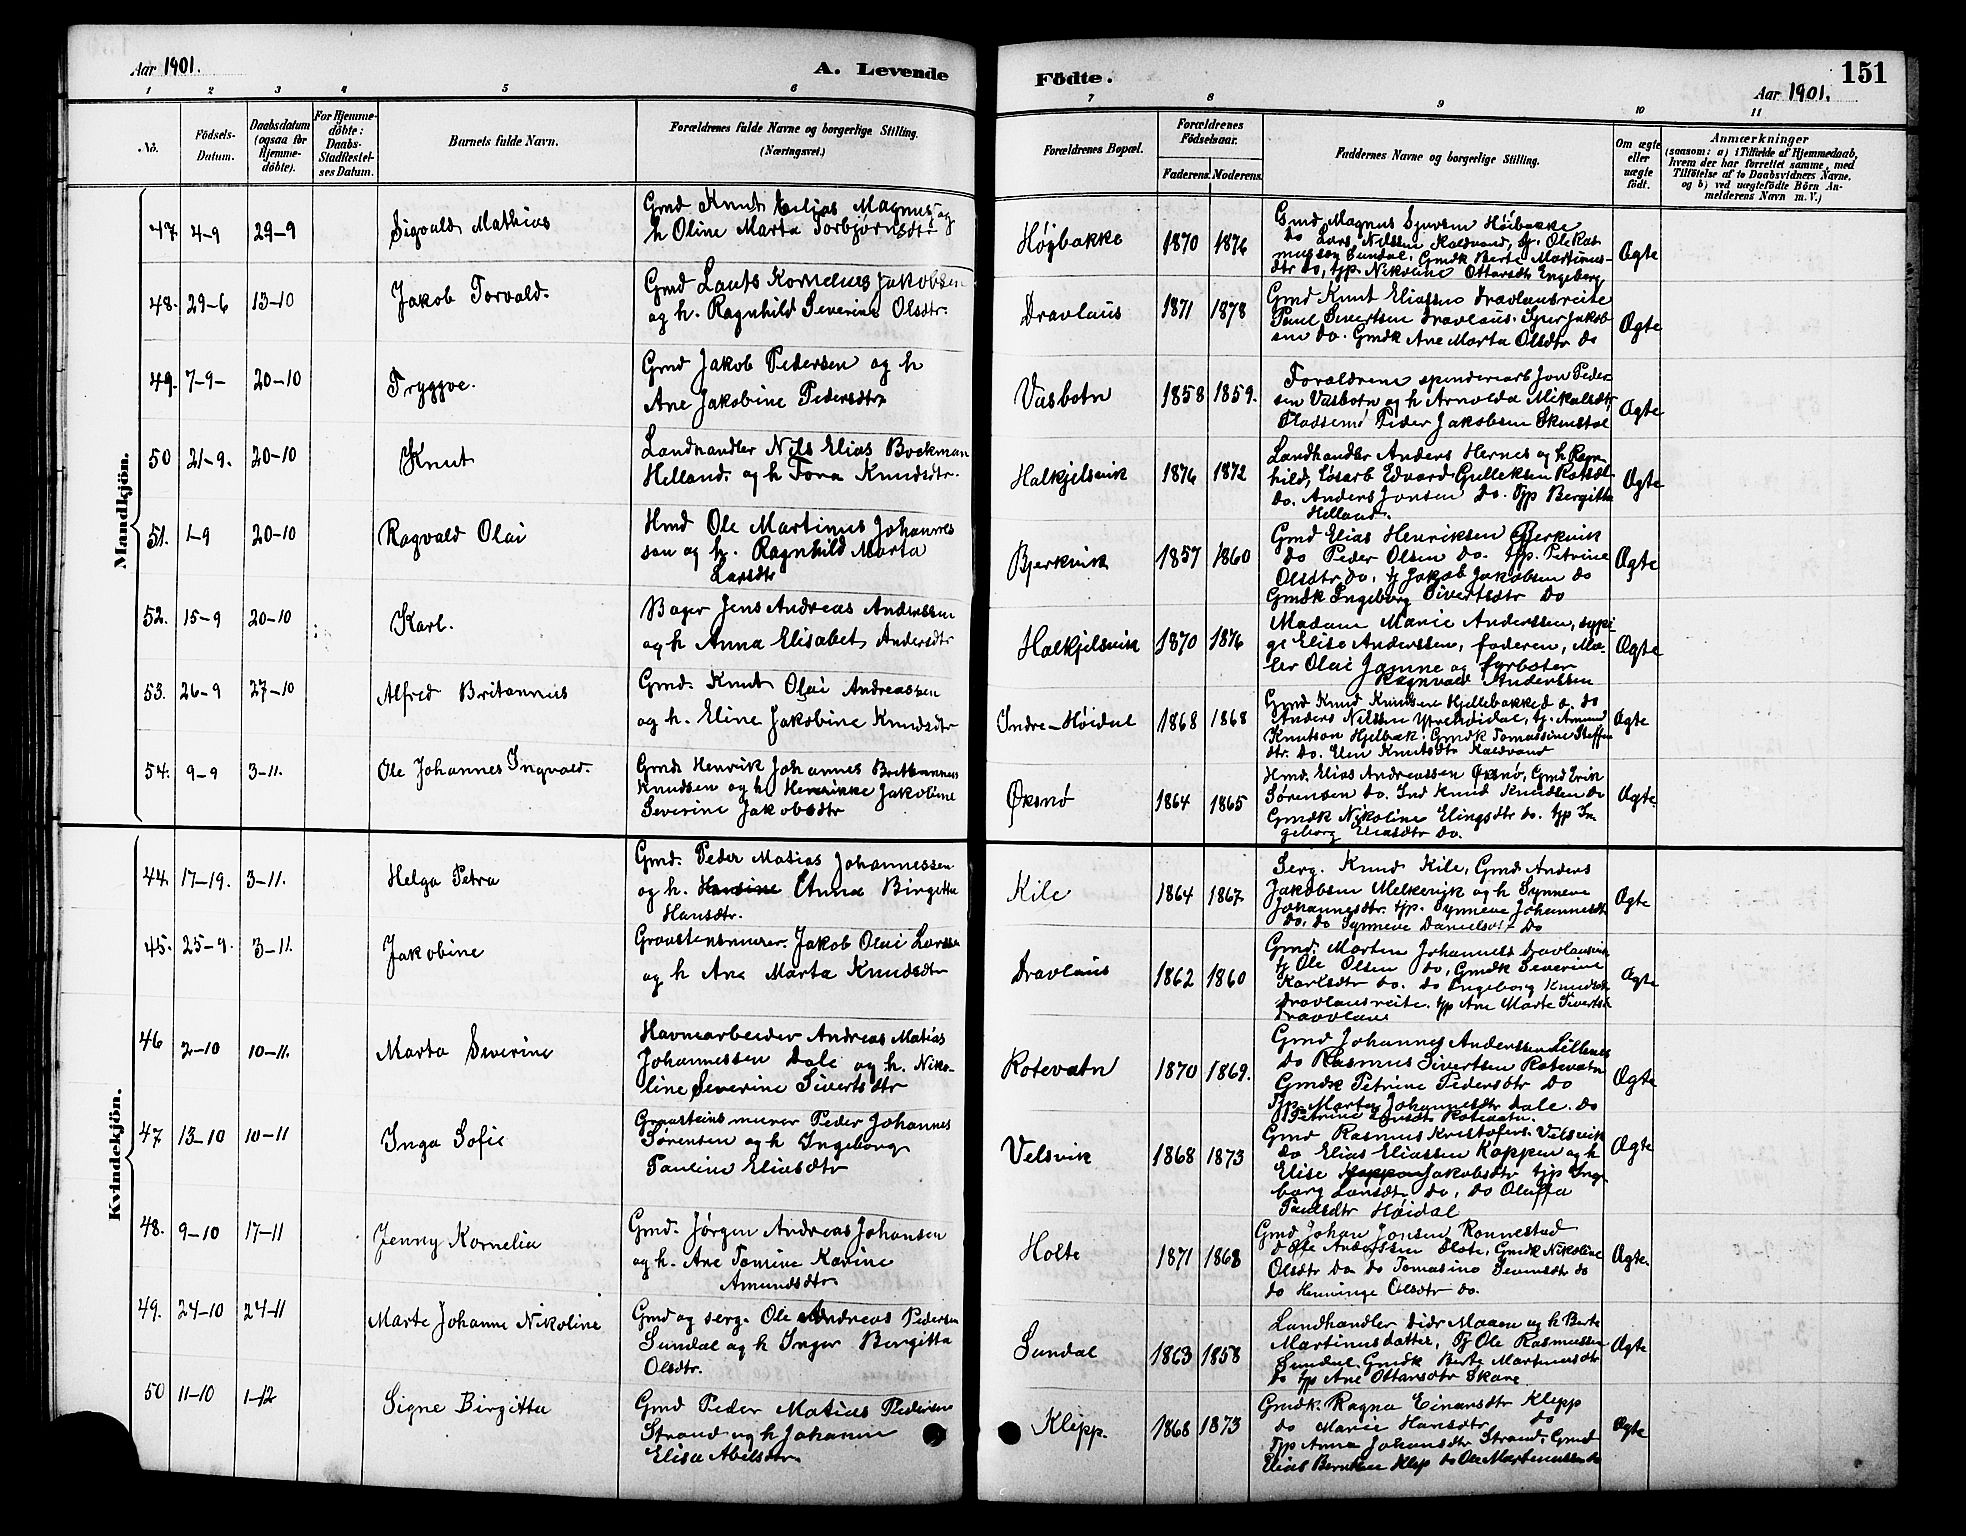 Aar 1901.
A. Levende
Födte.
151
Aar 1901.
1 2 3 4 5 6 7 8 9 10 11
No.
Födsels-
Datum.
Daabsdatum
(ogsaa for
Hjemme-
döbte).
For Hjemme-
döbte:
Daabs-
Stadfæstel-
ses Datum.
Barnets fulde Navn.
Forældrenes fulde Navne og borgerlige Stilling.
(Næringsvei.)
Forældrenes Bopæl.
Forældrenes
Födselsaar.
Faderens. Moderens.
Faddernes Navne og borgerlige Stilling.
Om ægte
eller
uægte
födt.
Anmærkninger
(saasom: a) i Tilfælde af Hjemmedaab,
hvem der har forrettet samme, med
Tilföielse af to Daabsvidners Navne,
og b) ved uægtefödte Börn An-
melderens Navn m. V.)
Mandkjön.
47. 4-9 29-9 Sigvald Mathias
Gmd Knud Elias Magnus og
h Oline Marta Torbjørnsdtr
Højbakke 1870 1876
Gmd Magnus Sjursen Høibakke
do Lars Nilssen Kaldvand, tj. Ole Ras
musson Sundal, Gmdk Berte Martinus-
dtr do, tjp. Nikoline Ottarsdtr Engeborg
Ægte
48. 29-6 13-10 Jakob Torvald.
Gmd Lauts Kornelius Jakobsen
og h. Ragnhild Severine Olsdtr.
Dravlaus 1871 1878
Gmd Knut Eliassen Dravlausreite
Paul Sivertsen Dravlaus. Sjur Jakob
sen do. Gmdk Ane Marta Olsdtr do
Ægte
49. 7-9- 20-10 Tryggve.
Gmd Jakob Pedersen og h
Ane Jakobine Pedersdtr
Vasbotn 1858 1859.
Forældrene spenderarb Jon Peder
sen Vasbotn og h Arnolda Mikalsdtr,
Pladsemd Peder Jakobsen
Ægte
50 21-9. 20-10 Knut
Landhandler Nils Elias Brekman
Helland. og h Tora Knudsdtr.
Halkjelsvik 1876 1872
Landhandler Anders Hernes og h Ragn
hild, Løsarb Edvard Gulleksen Rotsæt
do. Anders Jonsen do. Tjp Bergitta
Helland.
Ægte
51. 1-9 20-10 Ragvald Olai
Hmd Ole Martinus Johannes
sen og h. Ragnhild Marta
Larsdtr
Bjerknik 1857 1860
Gmd Elias Henriksen Bjerkvik
do Peder Olsen do. tjp. Petrine
Olsdtr do, tj Jakob Jakobsen do
Gmdk Ingeborg Sivertsdtr do
Ægte
52. 15-9 20-10 Karl.
Bager Jens Andreas Anderssen
og h Anna Elisabet Andersdtr
Halkjelsvik 1870 1876
Madam Marie Anderssen, sypi
ge Elise Anderssen, faderen, Ma-
ler Olai Jamne og fyrbøter
Ragnvald Anderssen
Ægte
53. 26-9 27-10 Alfred Britannus
Gmd. Knut Olai Andreassen
og h. Eline Jakobine Knudsdtr
Indre-Høidal 1868 1868
Gmd Knud Knudsen Hjellebakke d o. do
Anders Nilssen Ytrehøidal, tj. Amund
Knutson Hjelbak, Gmdk Tomassine Steffen
dtr. do. Elen Knutsdtr Kaldvand
Ægte
54. 9-9 3-11. Ole Johannes Ingvald.
Gmd. Henrik Johannes Brettannus
Knudsen og h Henrikke Jakobine
Severine Jakobsdtr
Øksnø 1864 1865
Hmd. Elias Andreassen Øksnø, Gmd Erik
Sørensen do. Ind Knud Knudsen do
Gmdk Nikoline Elingsdtr do. tjp In
geborg Eliasdtr do.
Ægte
Kvindekjön.
44. 17-19. 3-11. Helga Petra
Gmd. Peder Matias Johannessen
og h. Hansine Anna Birgitta
Hansdtr.
Kile 1864 1867
Serg. Knud Kile, Gmd Anders
Jakobsen Melkevik og h Synneve
Johannesdtr. tjp. Synneve Johannesdtr
do. do Synneve Danielsdtr do
Ægte
45. 25-9. 3-11. Jakobine
Graastensmurer. Jakob Olai Larssen
og h Ane Marta Knudsdtr
Dravlaus 1862 1860
Gmd. Morten Johannes Dravlausreit
tj Ole Olsen do, Gmdk Severine
Karlsdtr do. do Ingeborg Knudsdtr
Dravlausreite. tjp Ane Marte Sivertsd
Dravlaus
Ægte
46 2-10 10-11. Marta Severine
Havnearbeider Andreas Matias
Johannessen Dale og h. Niko-
line Severine Sivertsdtr
Rotevatn 1870 1869.
Gmd Johannes Anderssen Lillenes
do Rasmus Sivertsen Rotevatn
Gmdk Petrine Pedersdtr do
Tjp. Marta Johannesdtr Dale. do
Petrine Larsdtr Rotevatn.
Ægte
47 13-10 10-11 Inga Sofie
Graasteinsmurer Peder Johannes
Sørensen og h Ingeborg
Pauline Eliasdtr
Velsvik 1868 1873
Gmd Rasmus Kristofers. Velsvik
do Elias Eliassen Koppen og h
Elise Jakobsdtr tjp Inge
borg Larsdtr do, do Oluffa
Paulsdtr Høidal
Ægte
48. 9-10 17-11 Jenny Kornelia
Gmd. Jørgen Andreas Johansen
og h. Ane Tomine Karine
Amundsdtr
Holte 1871 1868
Gmd Johan Jonsen Ronnestad
do Anderssen Slote, Gmdk Nikoline
Olsdtr do do Tomasine Severinsdtr do
do Henninge Olsdtr do.
Ægte.
49. 24-10 24-11 Marte Johanne Nikoline
Gmd og serg. Ole Andreas Pedersen
Sundal og h Inger Bergitta
Olsdtr.
Sundal 1863 1858
Landhandler Didr Maaen og h Berte
Martinusdatter, Tj Ole Rasmussen
Sundal Gmdk Berte Martinusdtr
do tjp Ane Ottarsdtr Skare
Ægte
50 11-10 1-12 Signe Birgitta
Gmd Peder Matias Pedersen
Strand og h Johanne
Elisa Abelsdtr
Klepp. 1868 1873
Gmdk. Ragna Einarsdtr Klepp
do Marie Hansdtr do
Tjp Anna Johansdtr Strand, Gmd
Elias Berntsen Klep do Ole Martinussen do
Ægte